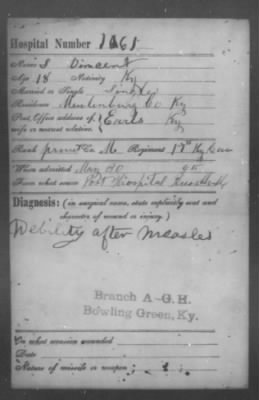 Hospital Number 1061
Name S Vincent
Age 18 Nativity Ky
Married or Single Single
Residence Muhlenburg Co Ky
Post Office address of Earles Ky
wife or nearest relative.
Rank private M Regiment 17th Ky Cav
When admitted May 20 65
From what source Post Hospital
Diagnosis: (in surgical cases, state explicitly seat and
character of wound or injury.)
Debility after measles
Branch A-G. H.
Bowling Green, Ky.
On what occasion wounded
Date
Nature of missile or weapon;